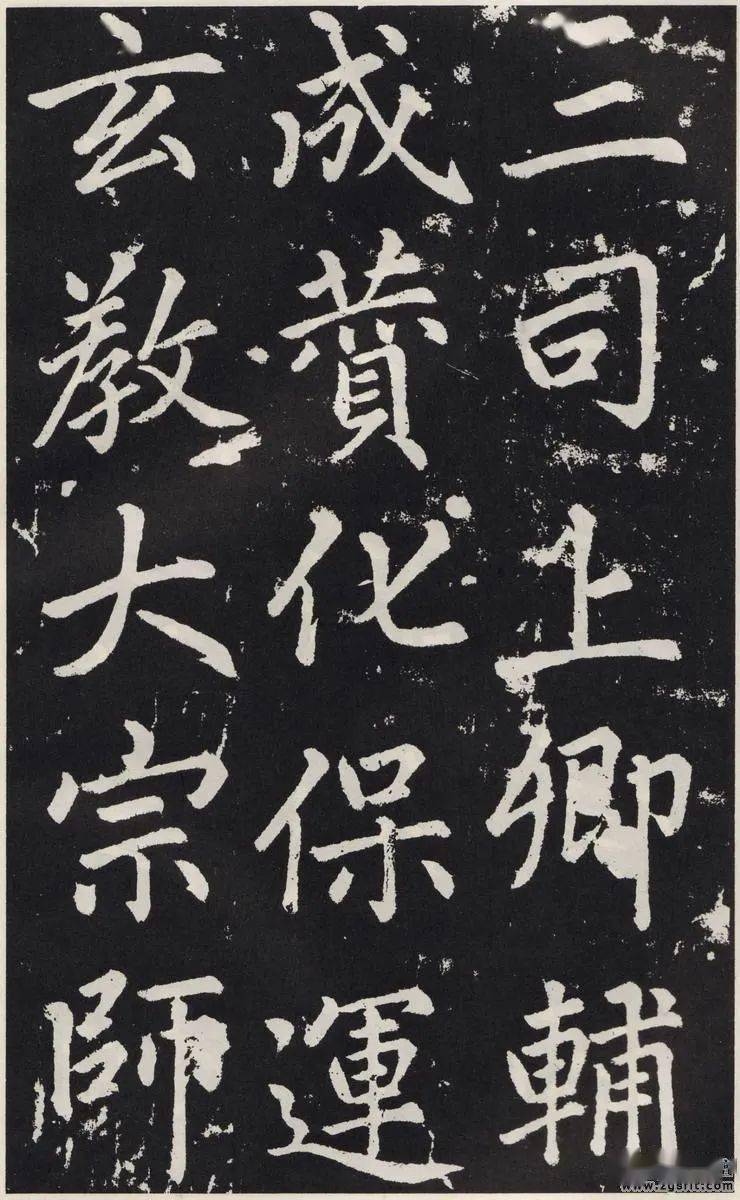 三司上卿輔
成贊化保運
玄教大宗師